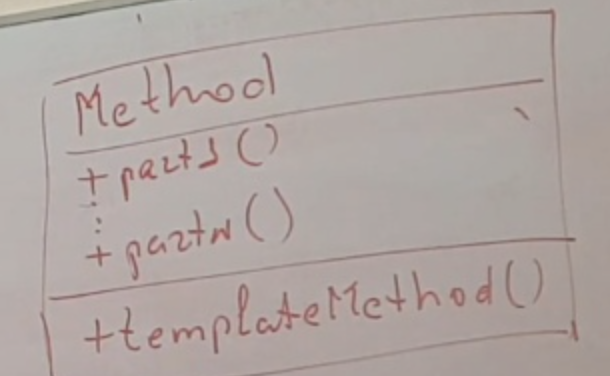 Method
+ part1 ()
⋮
+ partn ()
+templateMethod()